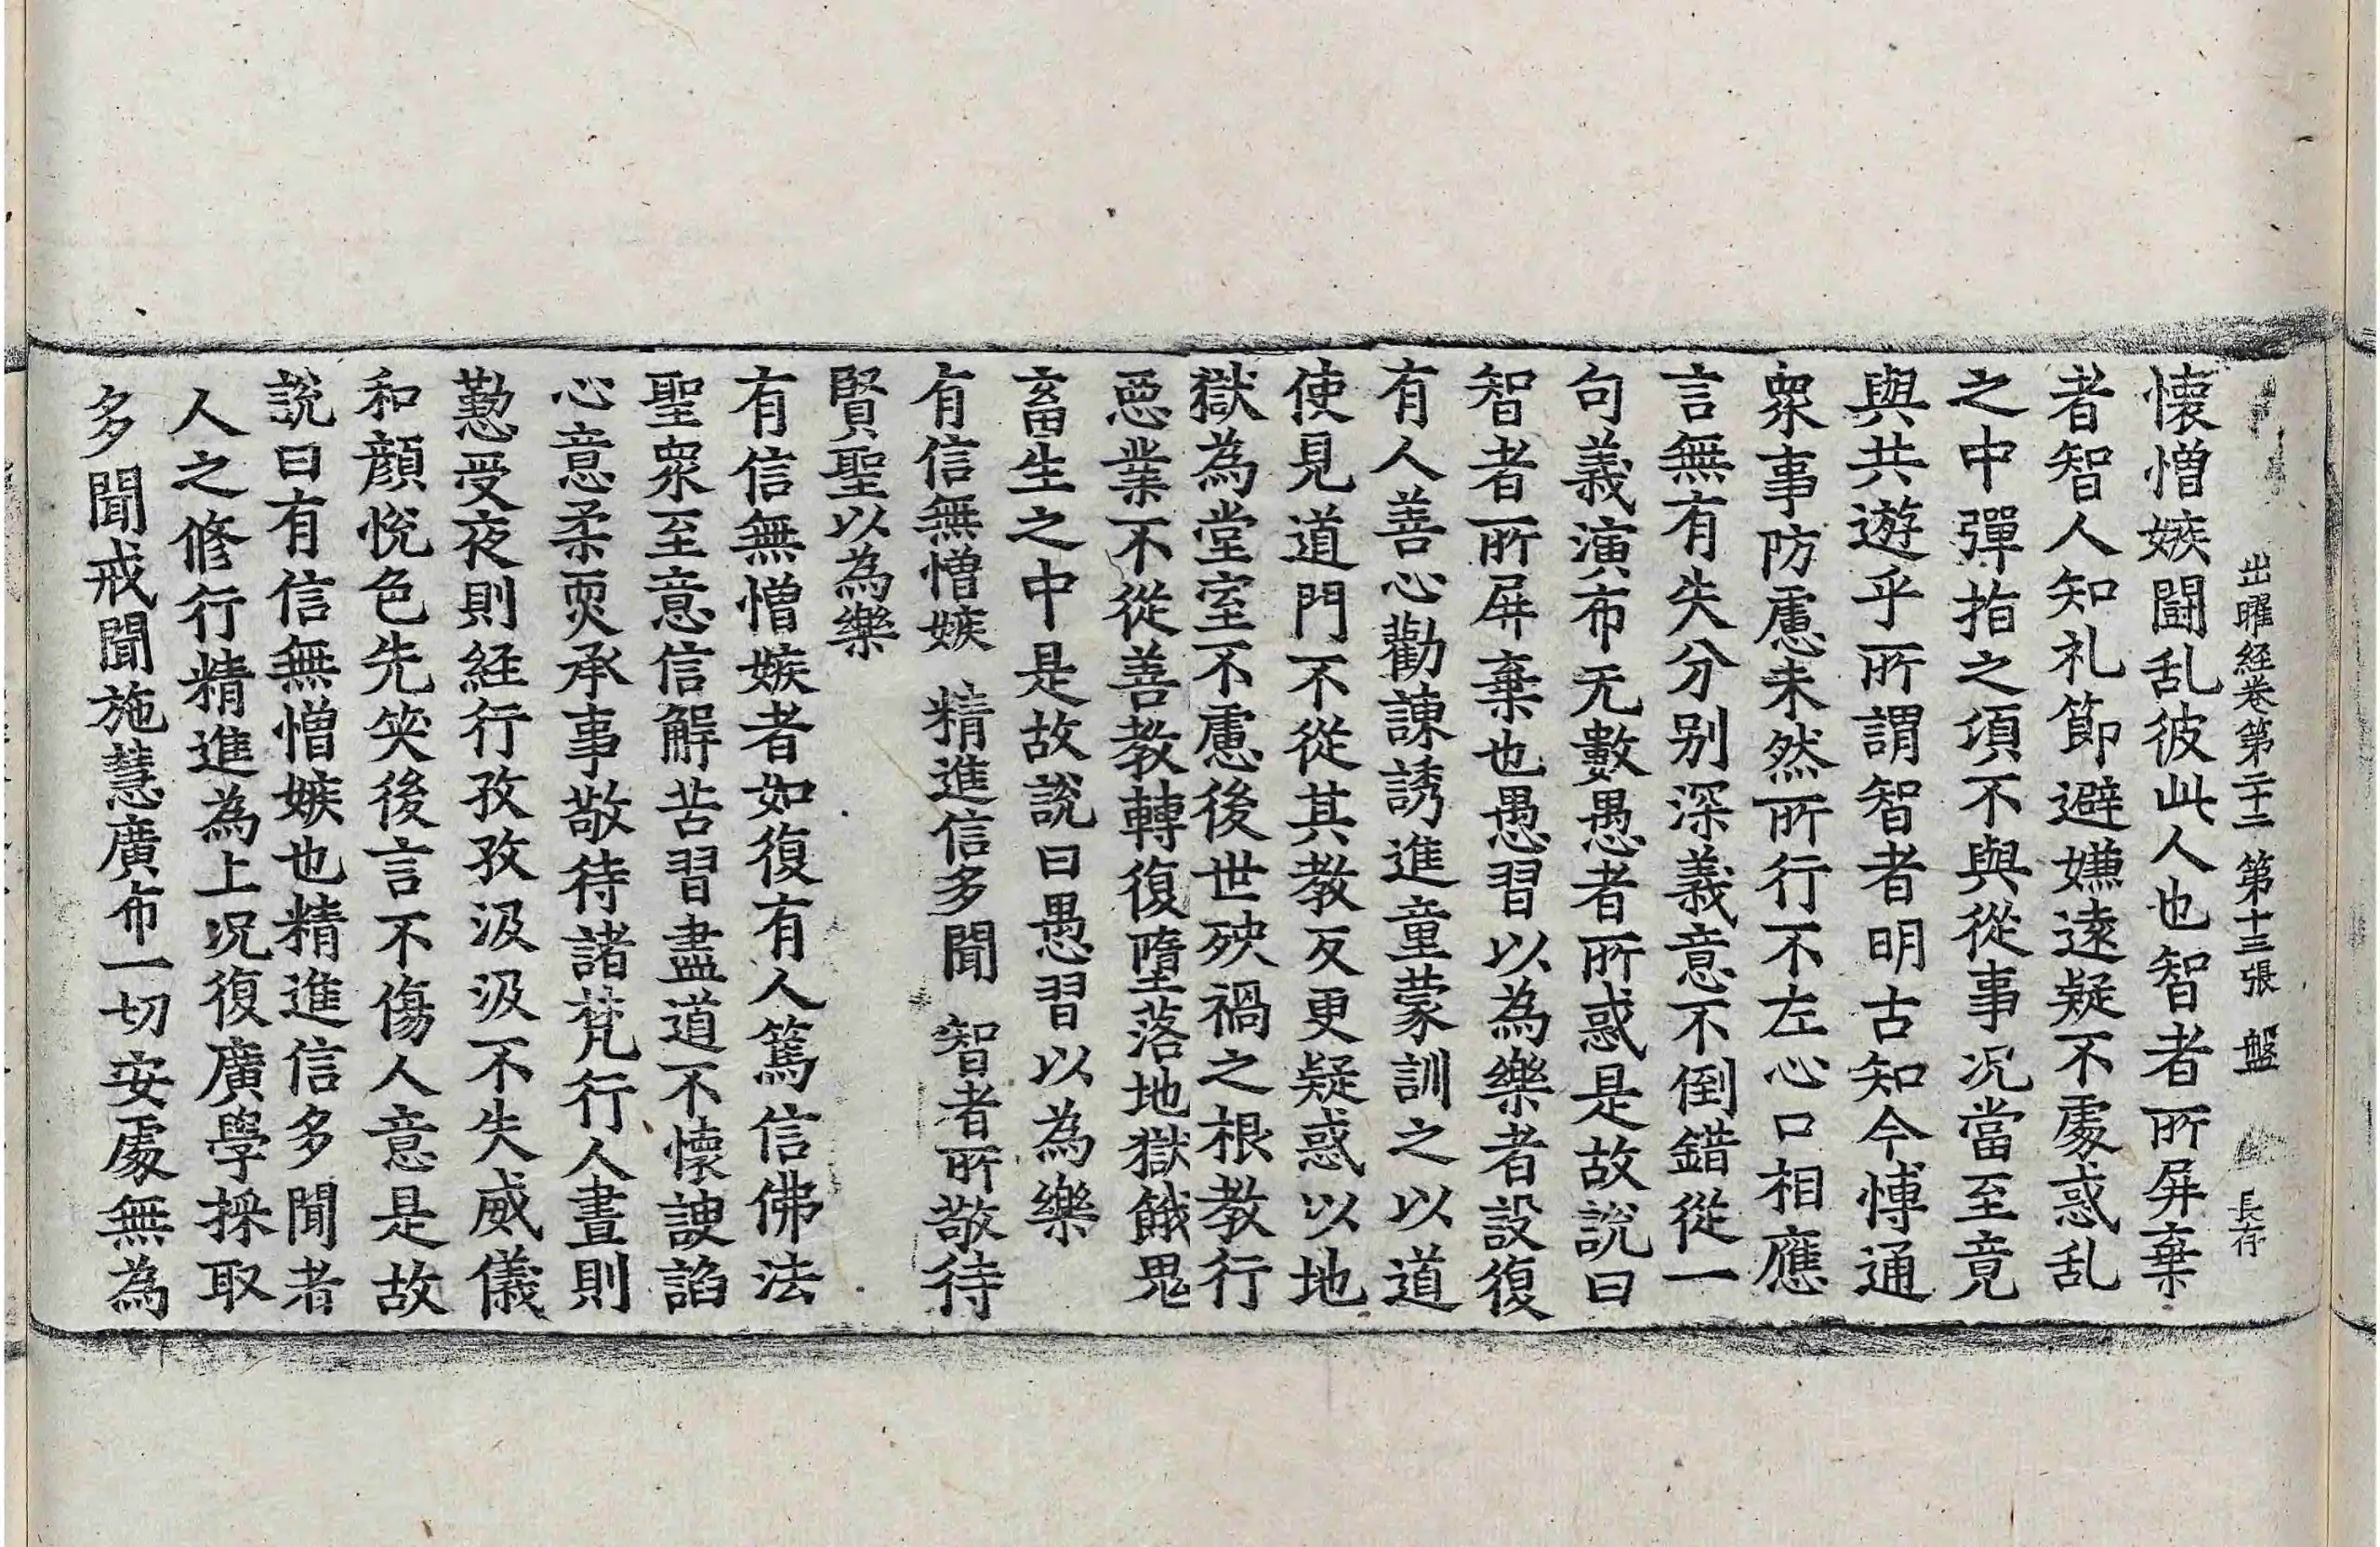 出曜経卷第二十二 第十三張 盤 長存
懷憎嫉鬪乱彼此人也智者所屏棄
者智人知礼節避嫌遠疑不處惑乱
之中彈指之湏不與從事况當至竟
與共遊乎所謂智者明古知今愽通
衆事防慮未然所行不左心口相應
言無有失分别深義意不倒錯從一
句義演布无數愚者所惑是故說曰
智者所屏棄也愚習以為樂者設復
有人善心勸諫誘進童蒙訓之以道
使見道門不從其教反更疑惑以地
獄為堂室不慮後世殃禍之根教行
惡業不從善教轉復墮落地獄餓鬼
畜生之中是故說曰愚習以為樂
有信無憎嫉 精進信多聞 智者所敬待
賢聖以為樂
有信無憎嫉者如復有人篤信佛法
聖衆至意信解苦習盡道不懷諛諂
心意柔耎承事敬待諸梵行人晝則
懃受夜則経行孜孜汲汲不失威儀
和顔恱色先笑後言不傷人意是故
說曰有信無憎嫉也精進信多聞者
人之修行精進為上况復廣學採取
多聞戒聞施慧廣布一切安處無為